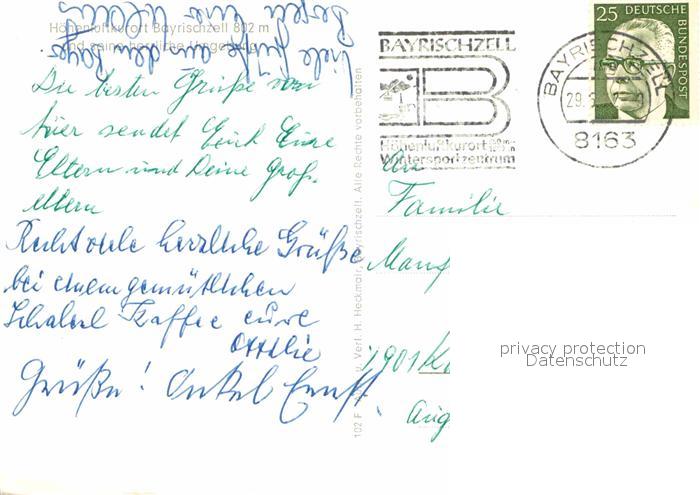 Höhenluftkurort Bayrischzell 802 m
und seine herrliche Umgebung
Viele Grüße aus den Bayer.
Bergen
Die besten Grüße von
hier sendet Euch Eure
Eltern und Deine Groß-
eltern
Recht viele herzliche Grüße
bei einem gemütlichen
Schalerl Kaffee eure
Ottilie
Grüße! Onkel Ernst
102 F
Verl. H. Heckmair, Bayrischzell. Alle Rechte vorbehalten
BAYRISCHZELL
B
Höhenluftkurort 800 m-
Wintersportzentrum
BAYRISCHZELL
29.
8163
25 DEUTSCHE
BUNDESPOST
An
Familie
Mang
7901
Aug
privacy protection
Datenschutz